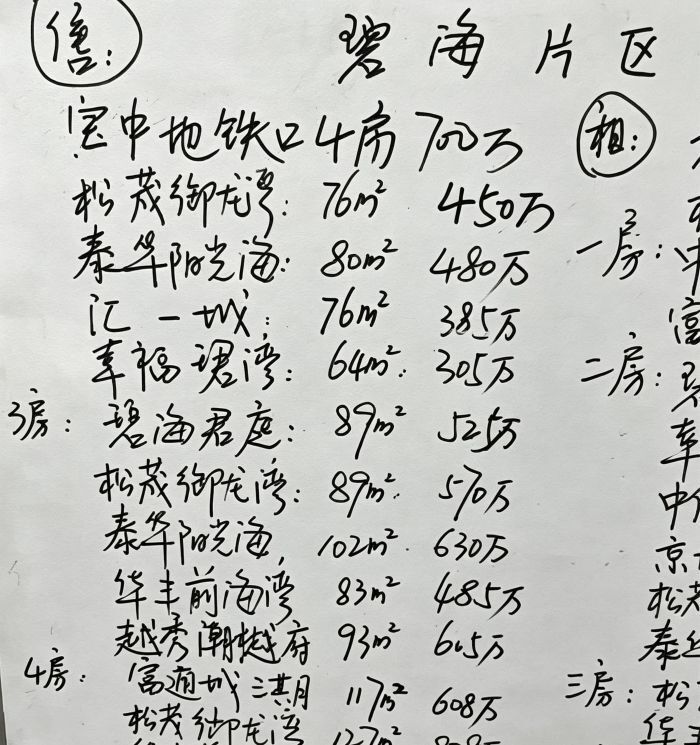 售:
碧海片区
宝中地铁口4房700万
松茂御龙湾: 76m² 450万
泰华阳光海: 80m² 480万
汇一城: 76m² 385万
幸福珺湾: 64m² 305万
3房: 碧海君庭: 89m² 525万
松茂御龙湾: 89m² 570万
泰华阳光海 102m² 630万
华丰前海湾 83m² 485万
越秀潮樾府 93m² 605万
4房: 富通城三期 117m² 608万
松茂御龙湾 127m²
租:
一房:
中
富
二房: 碧
幸
中
京
松茂
泰华
三房: 松
华